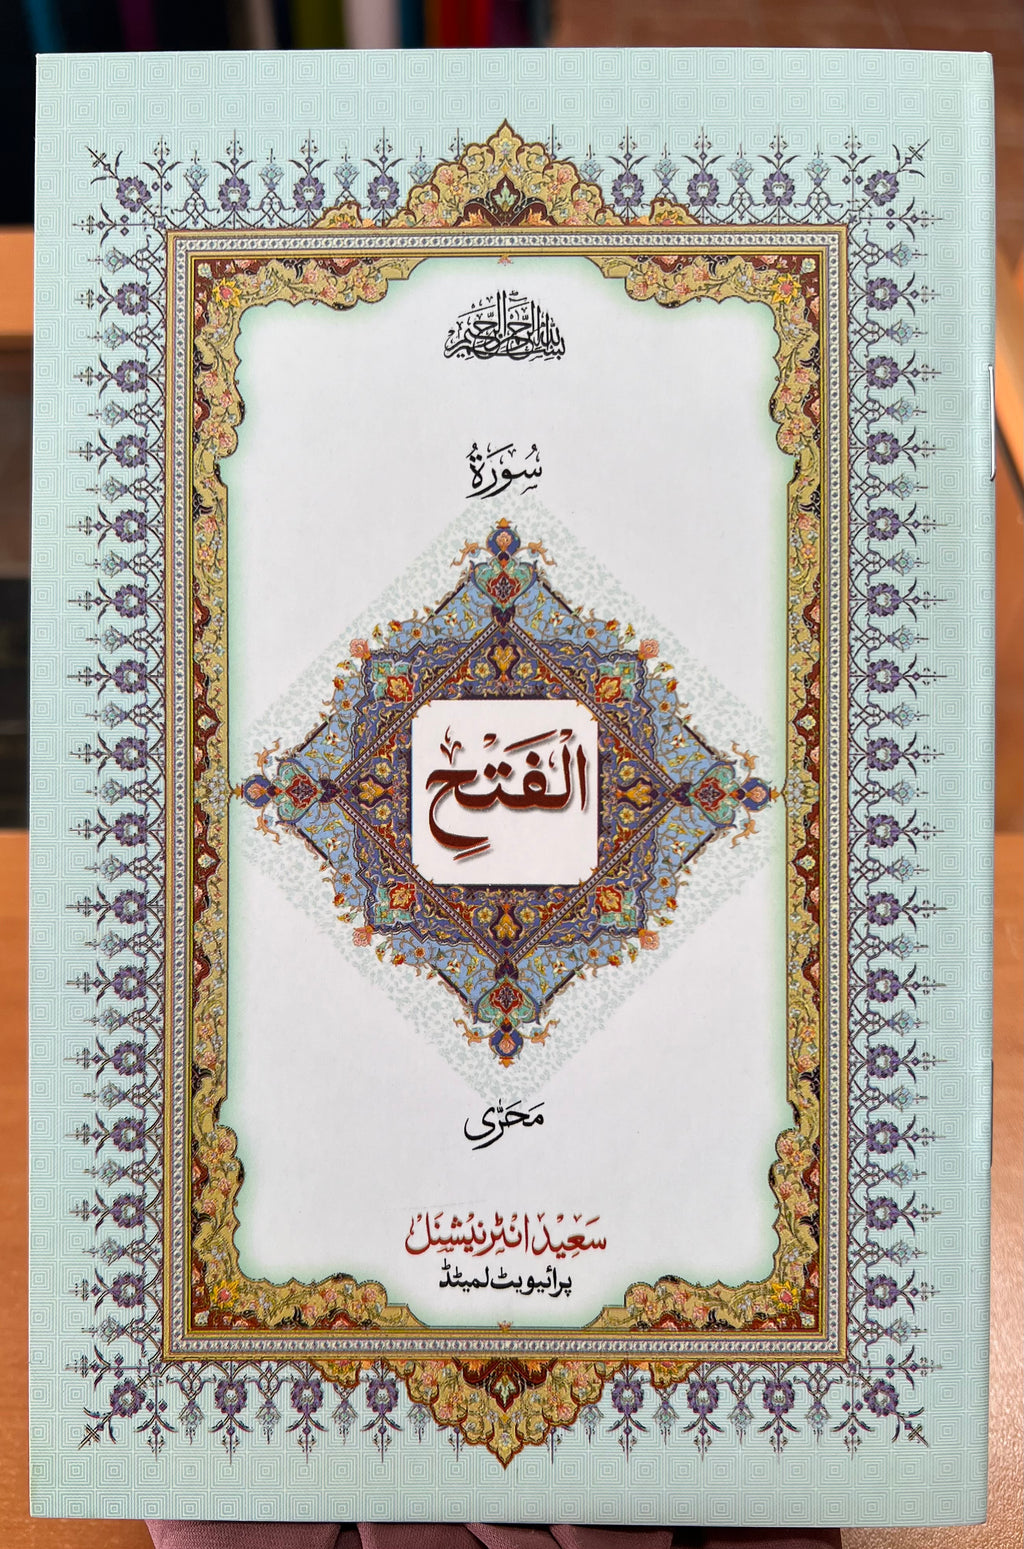 بسم الله الرحمن الرحيم
سُورَةُ
الْفَتَحِ
مَحَرّی
سَعِيْد انٹرنيشنَل
پرائیویٹ لمیٹڈ